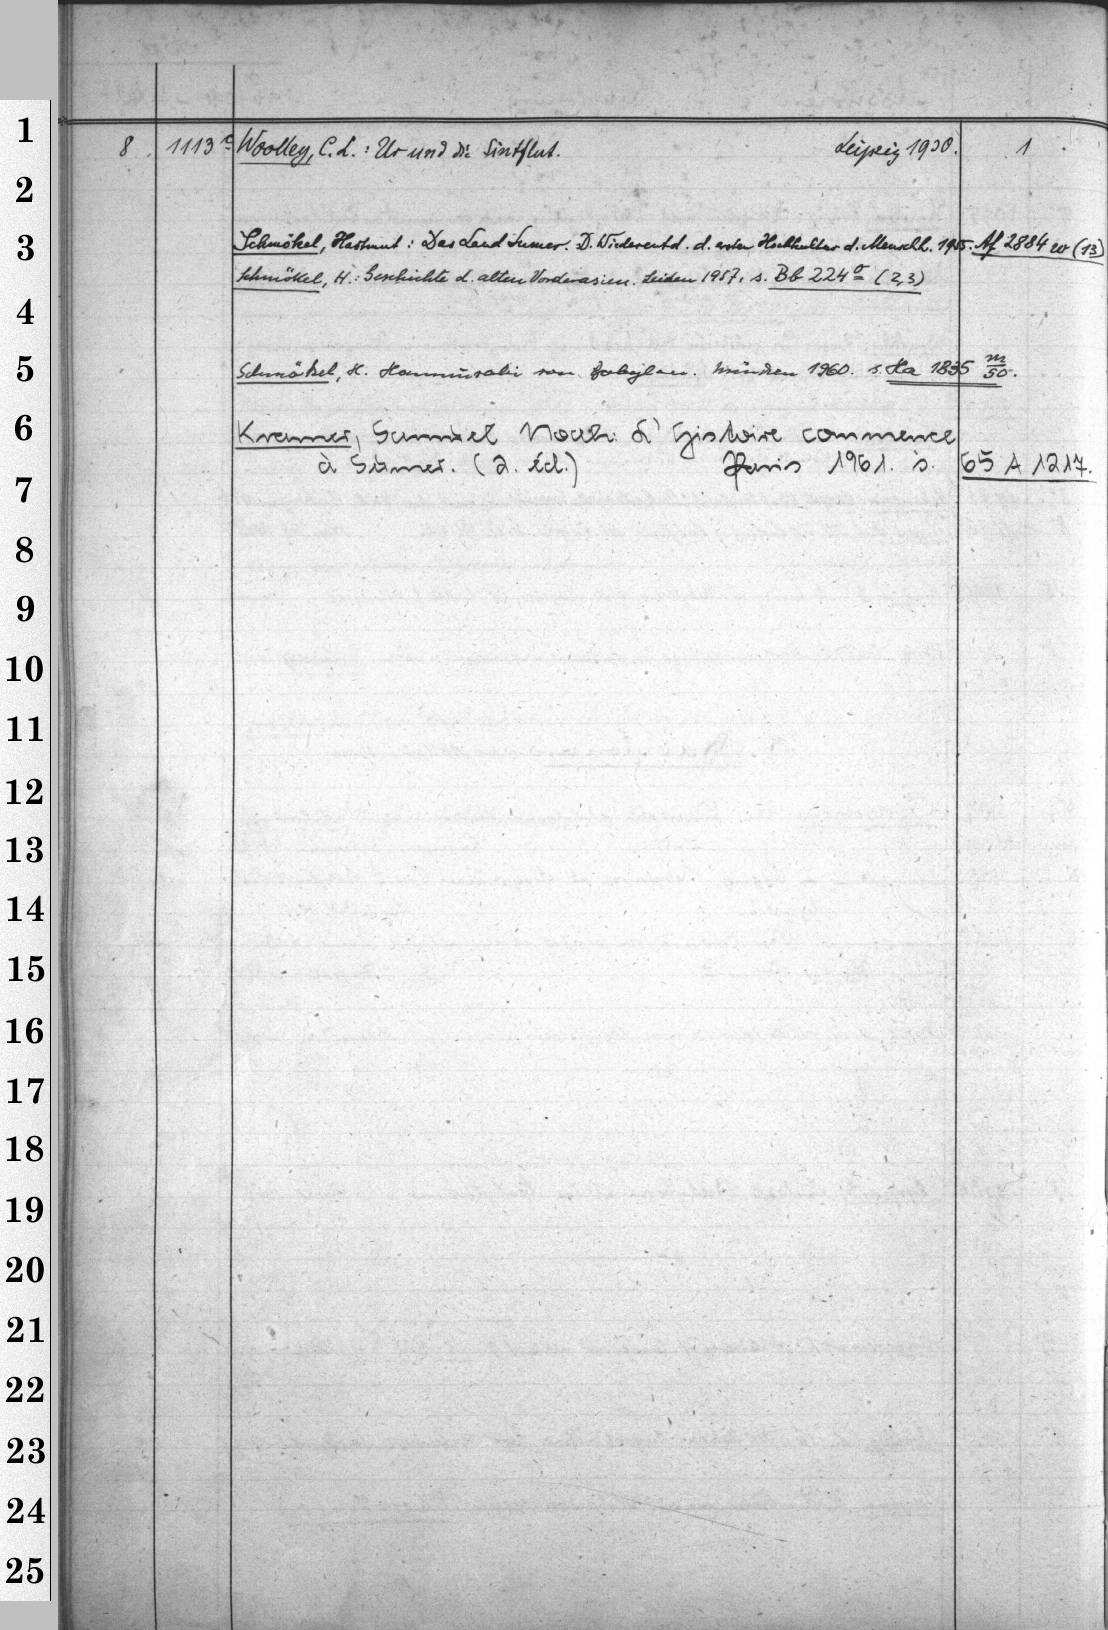 1
8 1113 c Woolley, C. L.: Ur und die Sintflut. Leipzig 1930. 1
2
3
Schmökel, Hartmut: Das Land Sumer. D. Wiederentd. d. ersten Hochkultur d. Menschh. 1955. Af 2884 w (13)
Schmökel, H.: Geschichte d. alten Vorderasien. Leiden 1957. s. Bb 224 o (2,3)
4
5
Schmökel, H. Hammurabi von Babylon. München 1960. s. Ha 1835 m/50.
6
Kramer, Samuel Noah: L'Histoire commence
à Sumer. (2. éd.) Paris 1961. s. 65 A 1217.
7
8
9
10
11
12
13
14
15
16
17
18
19
20
21
22
23
24
25